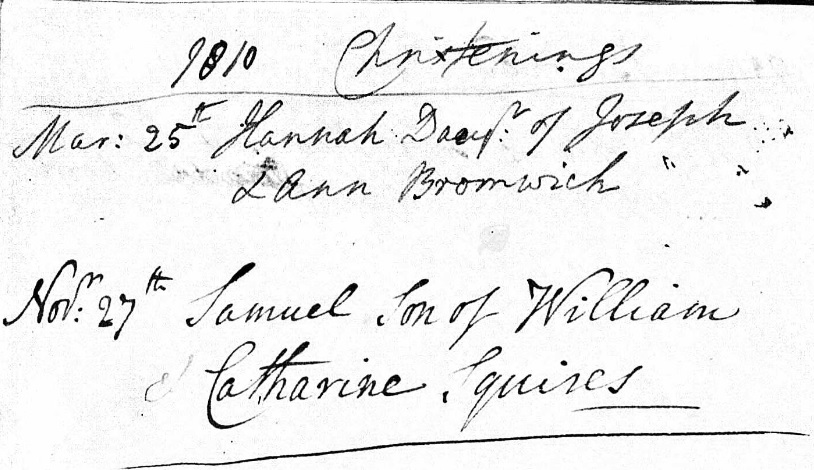 1810 Christenings
Mar: 25th Hannah Daugr. of Joseph
& Ann Bromwich " "
Novr: 27th Samuel Son of William
& Catharine Squires